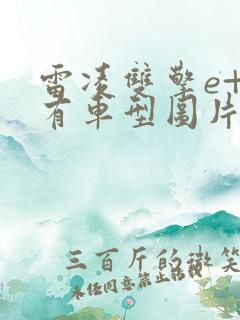 雷凌雙擎e+
有車型圖片
三百斤的微笑
未经同意禁止转载